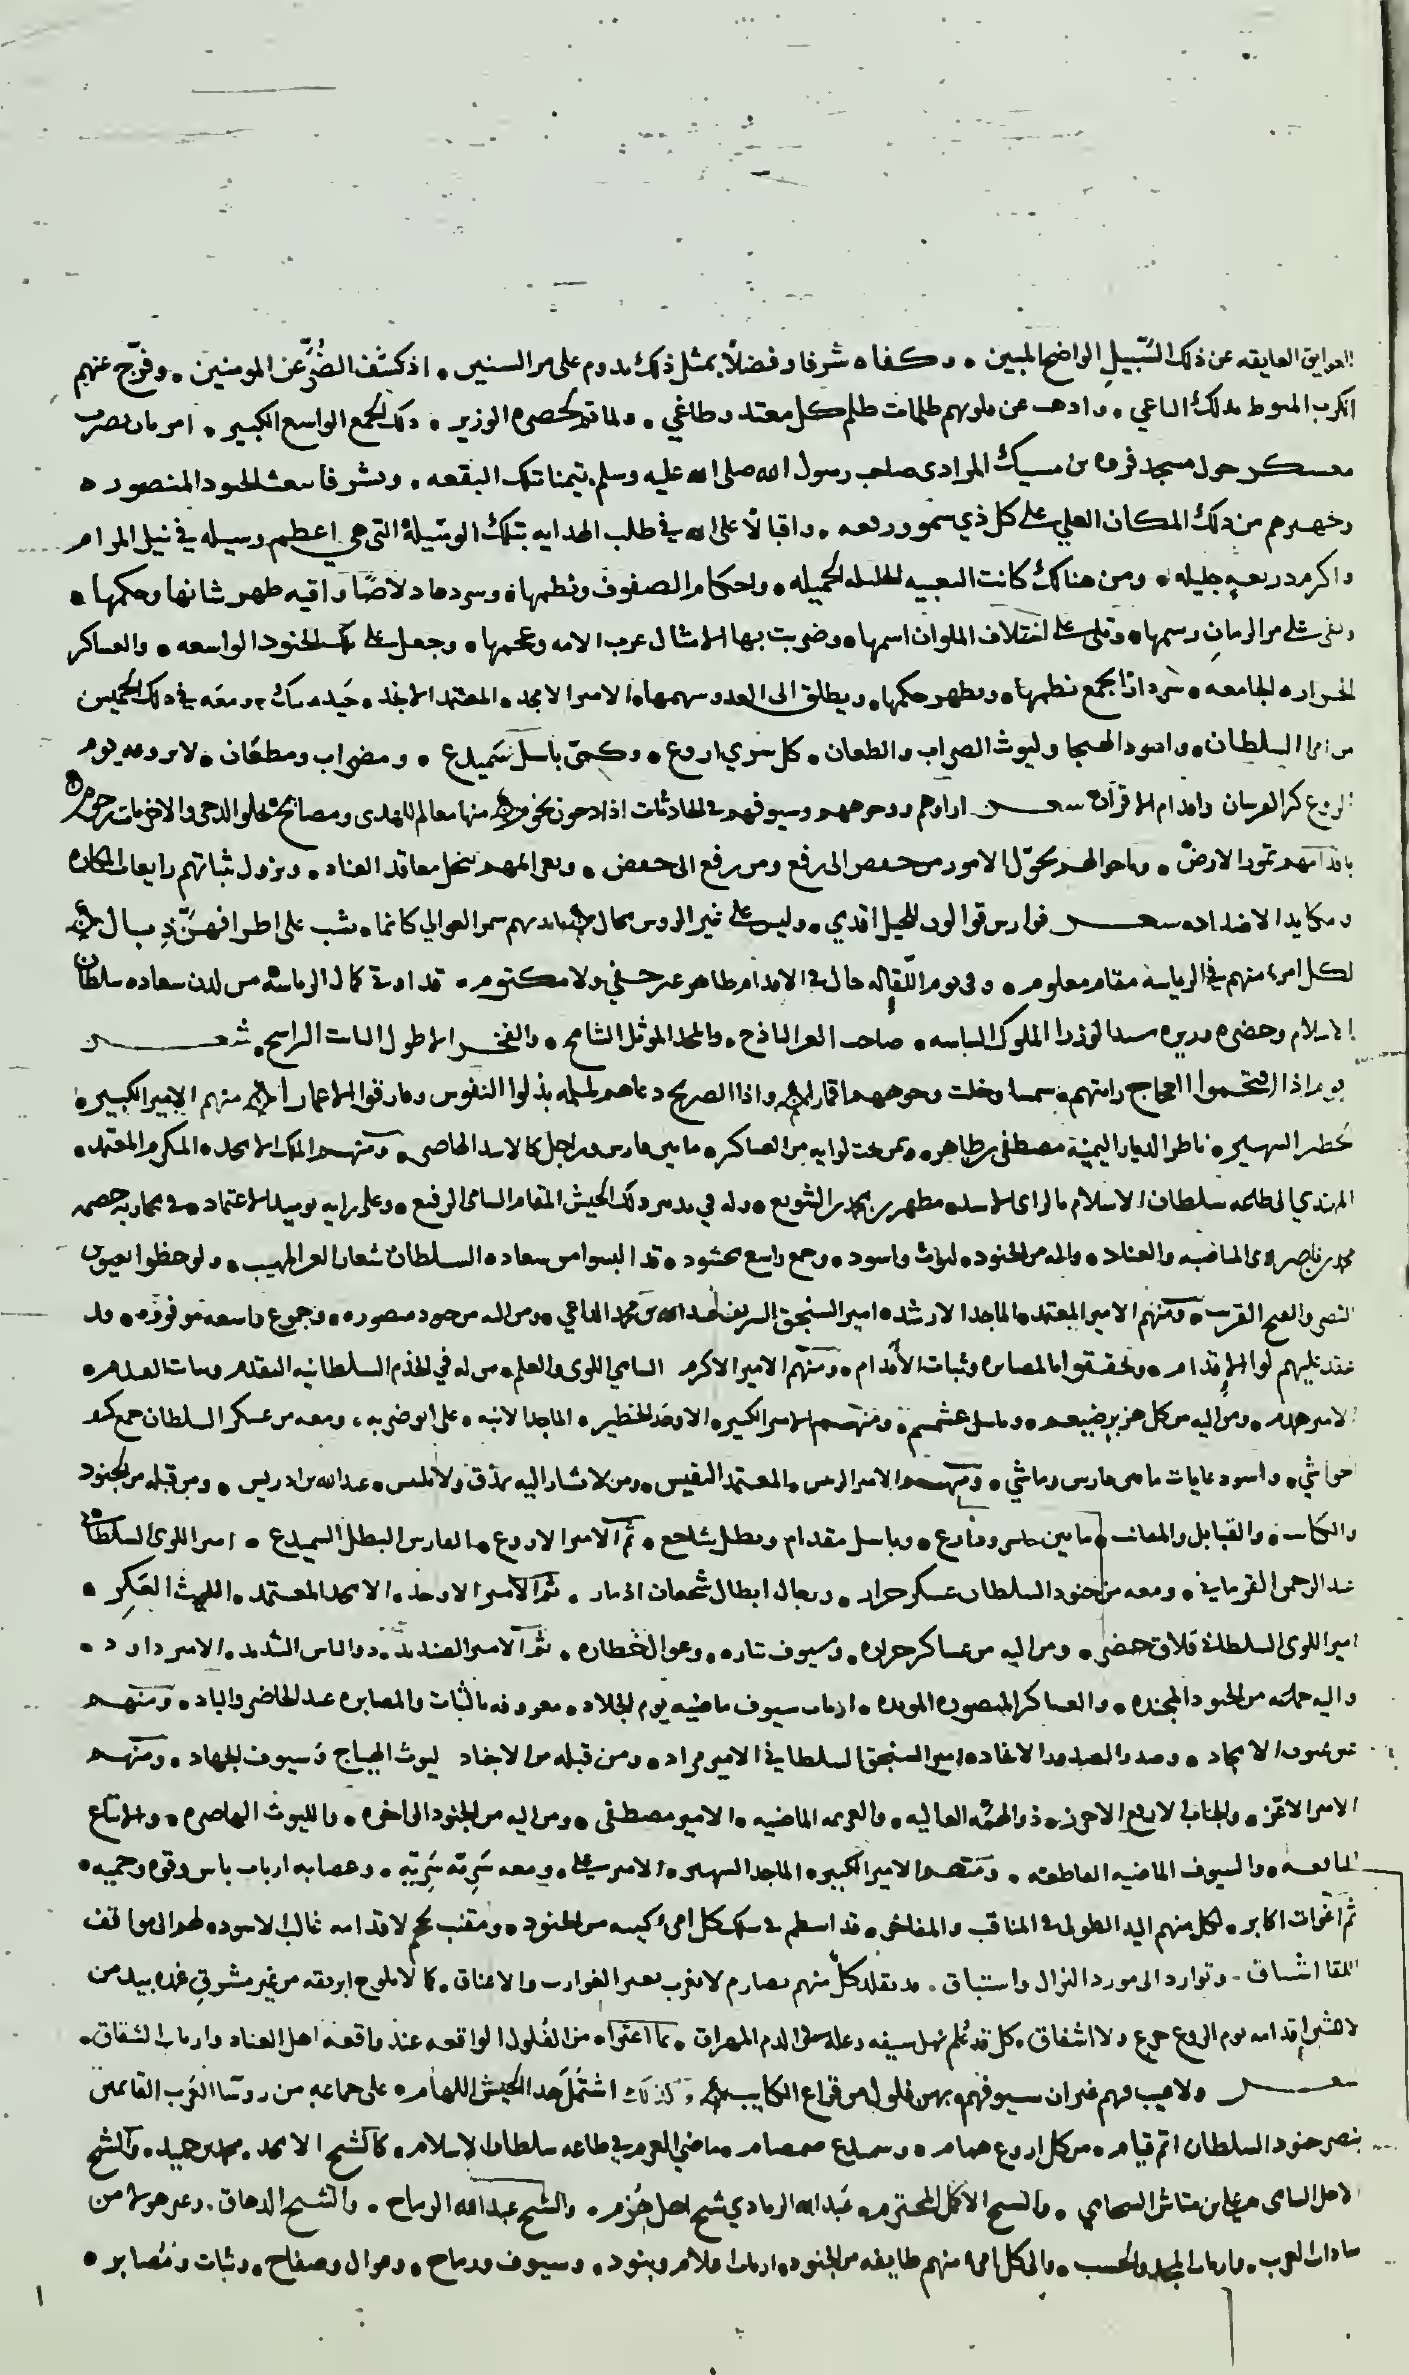 العوايق العايقه عن ذلك السَّبيلِ الواضح المبين • وكفاه شرفا وفضلًا بمثل ذلك يدوم على مر السنين • اذ كشف الضُرّ عن المومنين • وفرّج عنهم
الكرب المنوط بذلك الباغي • واذهب عن قلوبهم ظلمات ظلم كل معتد وطاغي • ولما تم لحضره الوزير • ذلك الجمع الواسع الكبير • امر بان يضرب
معسكر حول مسجد فروه بن مسيك المرادى صاحب رسول الله صلى الله عليه وسلم تيمنا بتلك البقعه • وتشرفا ببعث الجنود المنصوره
وتجهيزهم من ذلك المكان العلي على كل ذي سمو ورفعه • واقبالًا على الله في طلب الهدايه بتلك الوسيلة التى هي اعظم وسيله في نيل المرام
واكرم ذريعه جليله • ومن هنالك كانت التعبيه الجليله الجميله • واحكام الصفوف ونظمها • وسردها دلاصًا واقيه ظهر شانها وحكمها •
على مر الزمان رسمها • على اختلاف الملوان اسمها • وضربت بها الامثال عرب الامه وعجمها • وجعل على تلك الجنود الواسعه • والعساكر
الجراره الجامعه • سردارًا يجمع نظمها • ويظهر حكمها • ويطلق الى العدو سهمها • الامير الامجد • المعتمد الانجد • حيدر بك • ومعه في ذلك الخميس
من امرا السلطان • واسود الهيجا وليوث الضراب والطعان • كل سري اروع • وكميّ باسل سَميدع • ومضراب ومطعان • لا يروعه يوم
الروع كر الفرسان واقدام الاقران شعر اراوهم ووجوههم وسيوفهم في الحادثات اذا دجون نجوم منها معالم للهدى ومصابح تجلو الدجى والاخريات رجوم
باقدامهم تمور الارض • وباحوالهم تحوّل الامور من خفض الى رفع ومن رفع الى خفض • وبعزائمهم تنحل معاقد العناد • وتزول بثباتهم
ومكايد الاضداد شعر فوارس قوالون للخيل اقدمي • وليس على غير الروس مجال بايديهم سمر العوالي كانما • تشب على اطرافهنّ ذبال
لكل امرء منهم في الرياسه مقام معلوم • وفى يوم اللّقا له حال في الاقدام ظاهر غير خفي ولا مكتوم • قد اوتى كمال الرياسه من لدن سعاده سلطان
الاسلام وحضره وزيره سيد الوزرا الملوك • صاحب العز الباذخ • والمجد الموثل الشامخ • والفخر الاطول الثابت الراسخ • شعر
يوم اذا اقتحموا العجاج رايتهم • شمسا وخلت وجوههم اقمارا واذا الصريخ دعاهم لملمه بذلوا النفوس وفارقوا الاعمارا منهم الامير الكبير •
الشهير • ناظر الديار اليمنية مصطفى بن طاهر • ومن تحت لوايه من العساكر • ما بين فارس وراجل كالاسد الخاصى • ومنهم الملك الامجد • المكرم المعتمد •
لطاعه سلطان الاسلام بالراى الاسد • مطهر بن محمد الشويع • وله في تدبير ذلك الجيش المقام السامى الرفيع • وعلى رايه يوميذ الاعتماد • في محاربه خصمه
محمد بن ناصر ذى المناصبه والعناد • واليه من الجنود • ليوث واسود • وجمع واسع محشود • قد البسوا من سعاده السلطان شعار العز المهيب • ولوحظوا بعيون
النصر والفتح القريب • ومنهم الامير المعتمد • الماجد الارشد • امير السنجق الشريف عبد الله بن محمد الداعي • ومن اليه من جنود منصوره • وجموع واسعه موفوره • وقد
عقد عليهم لوا الاقدام • وتحققوا بالمصابره وثبات الاقدام • ومنهم الامير الاكرم السامى اللوى والعلم • من له في الخدم السلطانيه التقدم وثبات القدم •
الامير • ومن اليه من كل هزبر ضيغم • وباسل غشمشم • ومنهم الامير الكبير • الاوحد الخطير • الماجد الانبه • على ابو ضربه • ومعه من عسكر السلطان جمع كبير
حواشي • واسود غابات ما بين فارس وماشي • ومنهم الامير الرئيس • المعتمد النفيس • ومن لا يشار اليه بمذق ولا تلبيس • عبد الله بن ادريس • ومن قبله من الجنود
والكتايب • والقبايل والمقانب • ما بين حاسر ودارع • وباسل مقدام وبطل شاجع • ثم الامير الاروع • الفارس البطل السميدع • امير اللوى السلطانى
عبد الرحمن القرماني • ومعه من جنود السلطان عسكر جرار • ورجال ابطال شجعان اذمار • ثم الامير الاوحد • الامجد المعتمد • الليث الفكر •
امير اللوى السلطانى قلاق خضر • ومن اليه من عساكر جراره • وسيوف بتاره • وعوال خطاره • ثم الامير الصنديد • ذو الباس الشديد • الامير داود •
واليه جملة من الجنود المجنده • والعساكر المنصوره المويده • ارباب سيوف ماضيه يوم الجلاد • معروفه بالثبات والمصابره عند الحاضر والباد • ومنهم
عين عيون الامجاد • وصدر الصناديد الانجاد • امير السنجق السلطاني الامير مراد • ومن قبله من الاجناد ليوث الهياج وسيوف الجهاد • ومنهم
الامير الاعز • والجناب الارفع الاحرز • ذو الهمّه العاليه • والعزيمه الماضيه • الامير مصطفى • ومن اليه من الجنود الزاخره • والليوث الهاصره • والاتباع
النافعه • والسيوف الماضيه القاطعه • ومنهم الامير الكبير • الماجد الشهير • الامير على • ومعه سَرِيّه سَرِيّه • وعصابه ارباب باس وقوه وحميه •
ثم اغوات اكابر • لكل منهم اليد الطولى في المناقب والمفاخر • قد انتظم في سلك كل امير كتيبه من الجنود • ومقنب تحجم لاقدامه غالب الاسود • لهم الى مواقف
اللقا اشتياق • وتوارد الى مورد النزال واستباق • قد تقلد كلّ منهم بصارم لا يغرب بغير الغوارب والاعناق • كما لا يلوح ابريقه من غير مشرق غمده بيد من
لا يثني اقدامه يوم الروع جزع ولا اشفاق • كل قد علم نهل سيفه وعله من الدم المهراق • بما اعتراه من الفلول الواقعه عند واقعه اهل العناد وارباب الشقاق •
شعر ولا عيب فيهم غير ان سيوفهم • بهن فلول من قراع الكتايب وكذلك اشتمل هذا الجيش اللهام • على جماعه من روسا العرب القايمين
بنصر جنود السلطان اتم قيام • من كل اروع همام • وسميدع صمصام • ماضي العزم في طاعه سلطان الاسلام • كالشيخ الامجد • محمد بن حميد • والشيخ
الاجل السامى • والشيخ الاكمل المحترم • عبد الله الرمادي شيخ اهل حُزم • والشيخ عبد الله الرماح • والشيخ الدحاق • وغير هولا من
سادات العرب • وارباب المجد والحسب • والى كل امير منهم طايفه من الجنود • ارباب اعلام وبنود • وسيوف ورماح • وعوال وصفاح • وثبات ومصابره •